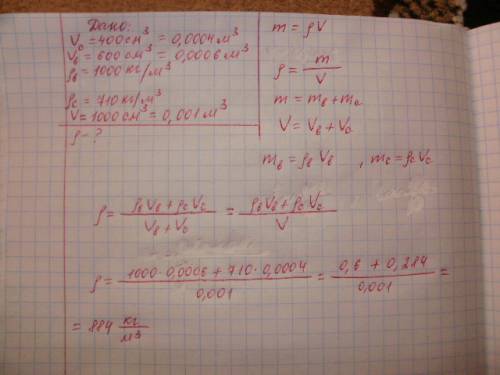 Дано:
Vc = 400 см³ = 0,0004 м³
Vв = 600 см³ = 0,0006 м³
ρв = 1000 кг/м³
ρc = 710 кг/м³
V = 1000 см³ = 0,001 м³
ρ - ?
m = ρV
ρ = m/V
m = mв + mc
V = Vв + Vc
mв = ρв Vв , mc = ρc Vc
ρ = (ρв Vв + ρc Vc)/(Vв + Vc) = (ρв Vв + ρc Vc)/V
ρ = (1000 · 0,0006 + 710 · 0,0004)/0,001 = (0,6 + 0,284)/0,001 =
= 884 кг/м³